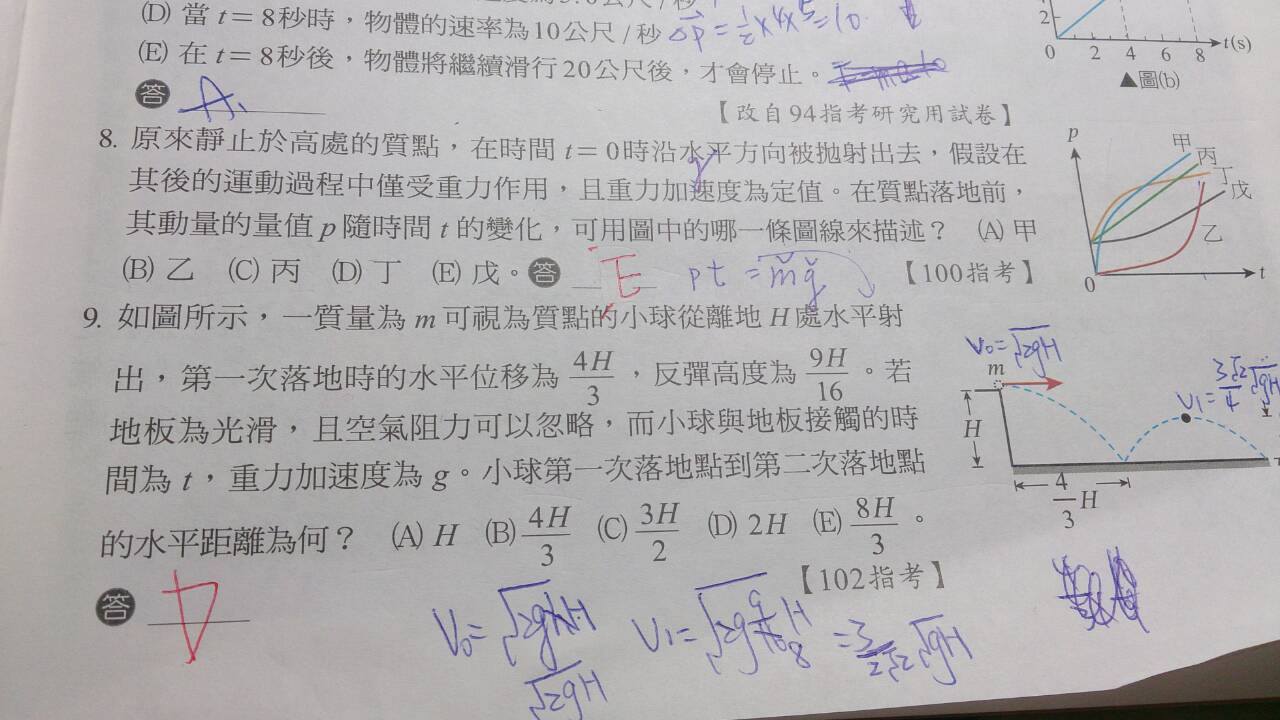 (D) 當 t＝8秒時，物體的速率為10公尺/秒 Δp = 1/2 x4x5=10
(E) 在 t＝8秒後，物體將繼續滑行20公尺後，才會停止。
答 A.
【改自94指考研究用試卷】
2
0 2 4 6 8 t(s)
▲圖(b)
8. 原來靜止於高處的質點，在時間 t＝0時沿水平方向被拋射出去，假設在
其後的運動過程中僅受重力作用，且重力加速度為定值。在質點落地前，
其動量的量值 p 隨時間 t 的變化，可用圖中的哪一條圖線來描述？ (A) 甲
(B) 乙 (C) 丙 (D) 丁 (E) 戊。答 E pt = mg 【100指考】
p
甲
丙
丁
戊
乙
0
t
9. 如圖所示，一質量為 m 可視為質點的小球從離地 H 處水平射
出，第一次落地時的水平位移為 4H/3，反彈高度為 9H/16。若
地板為光滑，且空氣阻力可以忽略，而小球與地板接觸的時
間為 t，重力加速度為 g。小球第一次落地點到第二次落地點
的水平距離為何？ (A) H (B) 4H/3 (C) 3H/2 (D) 2H (E) 8H/3。
【102指考】
答 D
V0=√2gH
m
H
4/3 H
V1= 3√2/4 √gH
V0=
√2gH
V1=
= 3/2√2 √gH